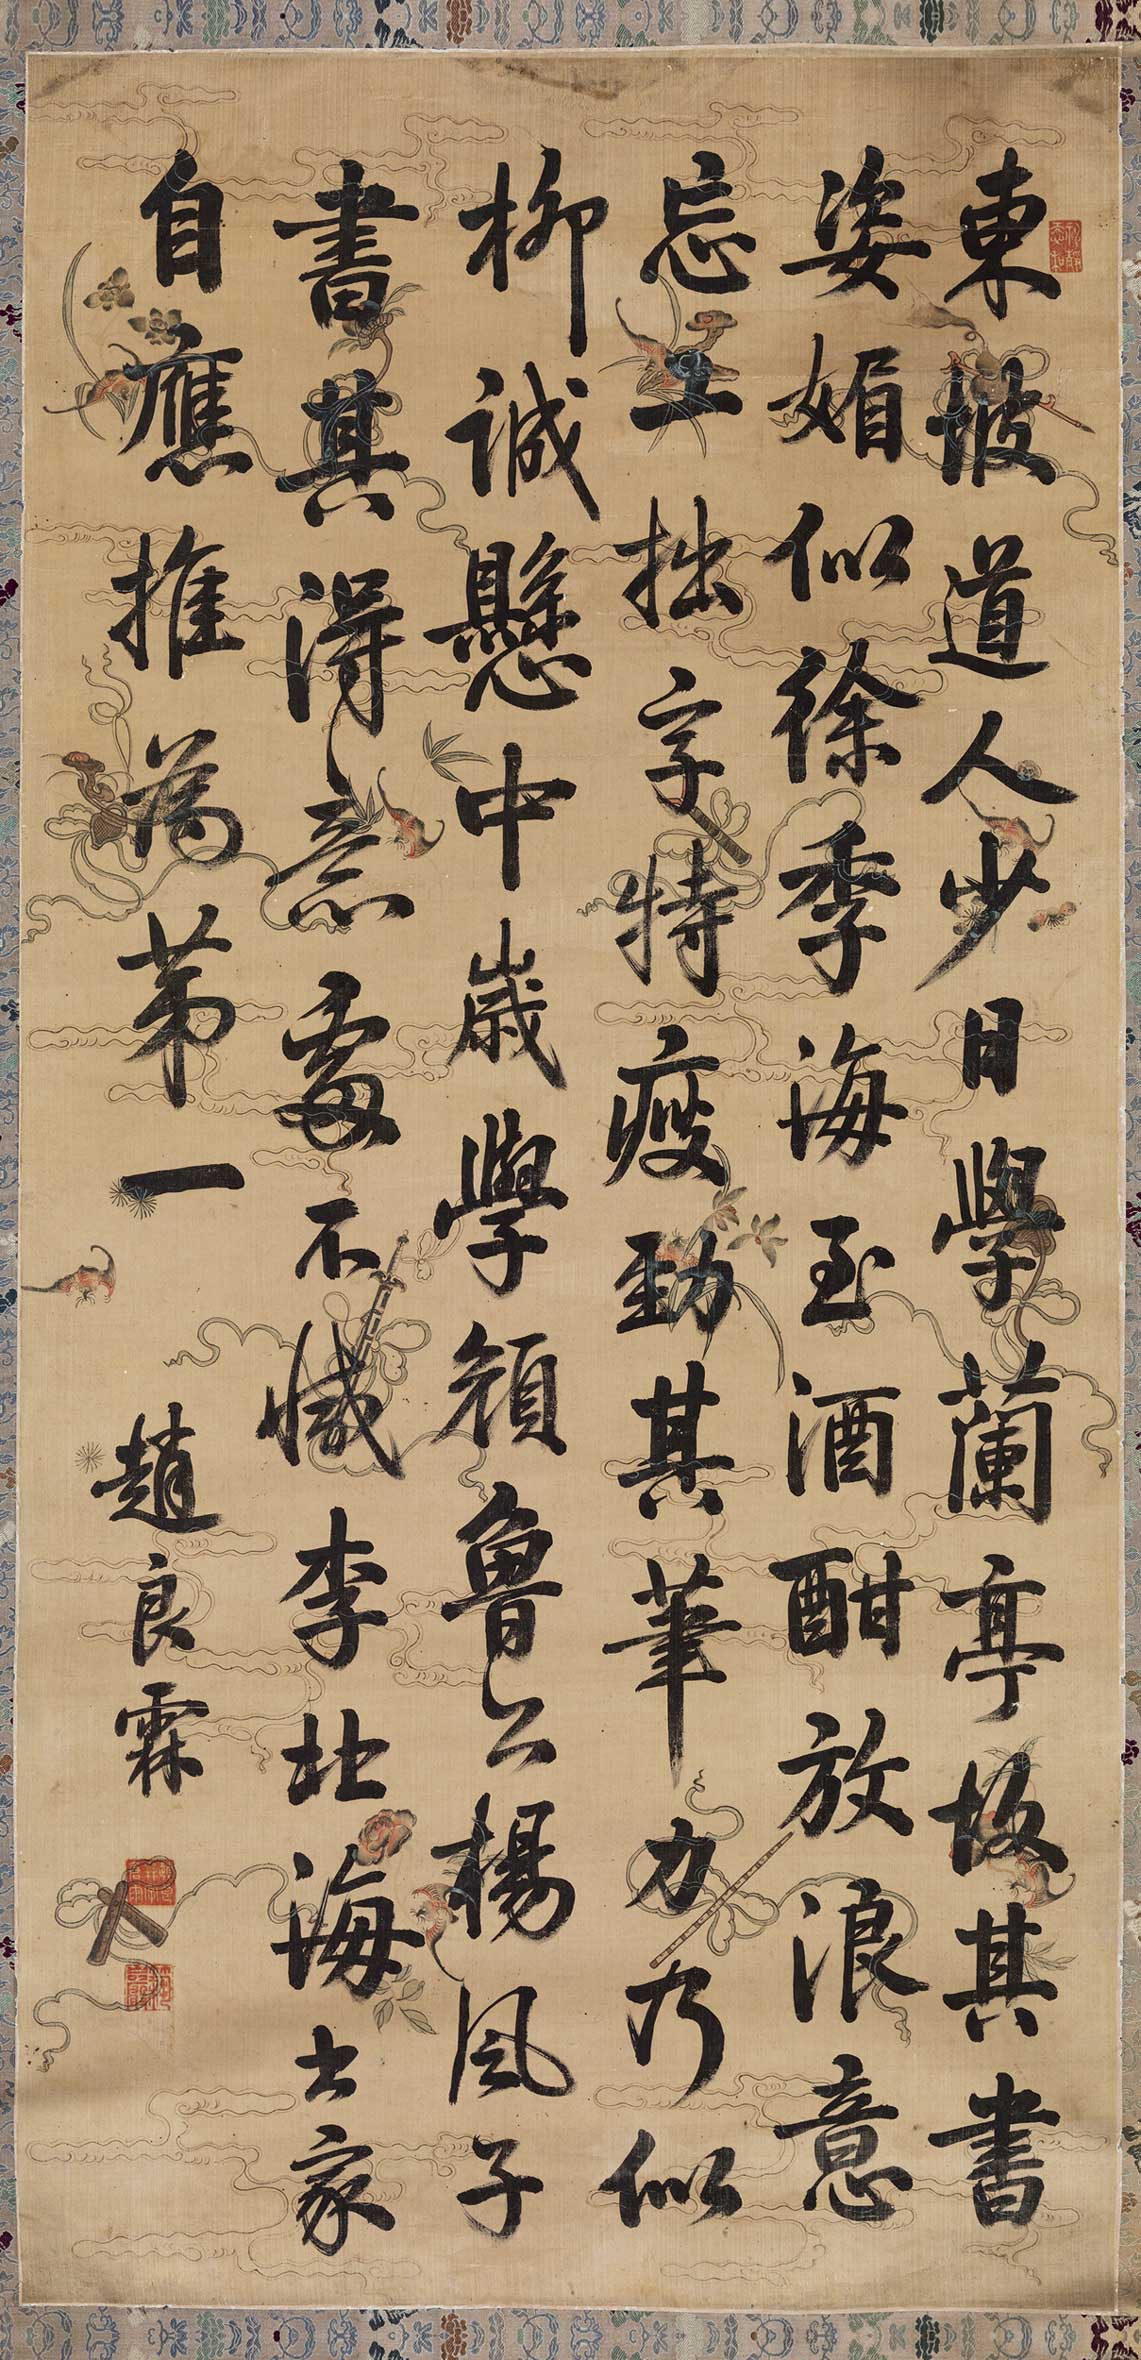 東坡道人少日學蘭亭故其書
姿媚似徐季海至酒酣放浪意
忘工拙字特瘦勁其筆力乃似
柳誠懸中歲學顏魯公楊風子
書其得意處不慽李北海古家
自應推為第一
趙良霖